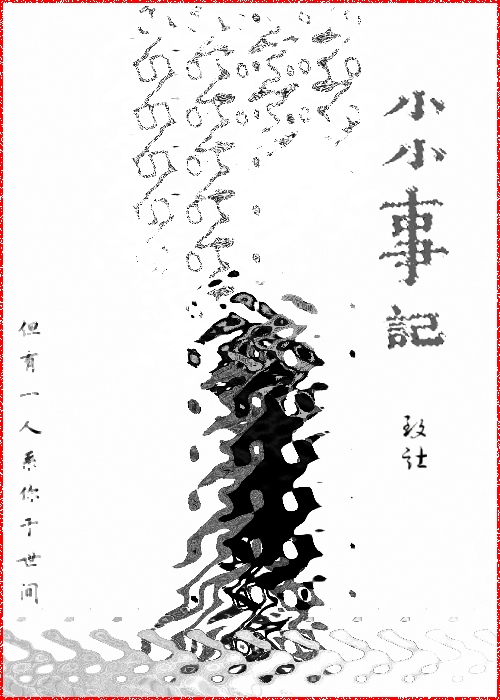 小小事記
玫社
但有一人系你于世间